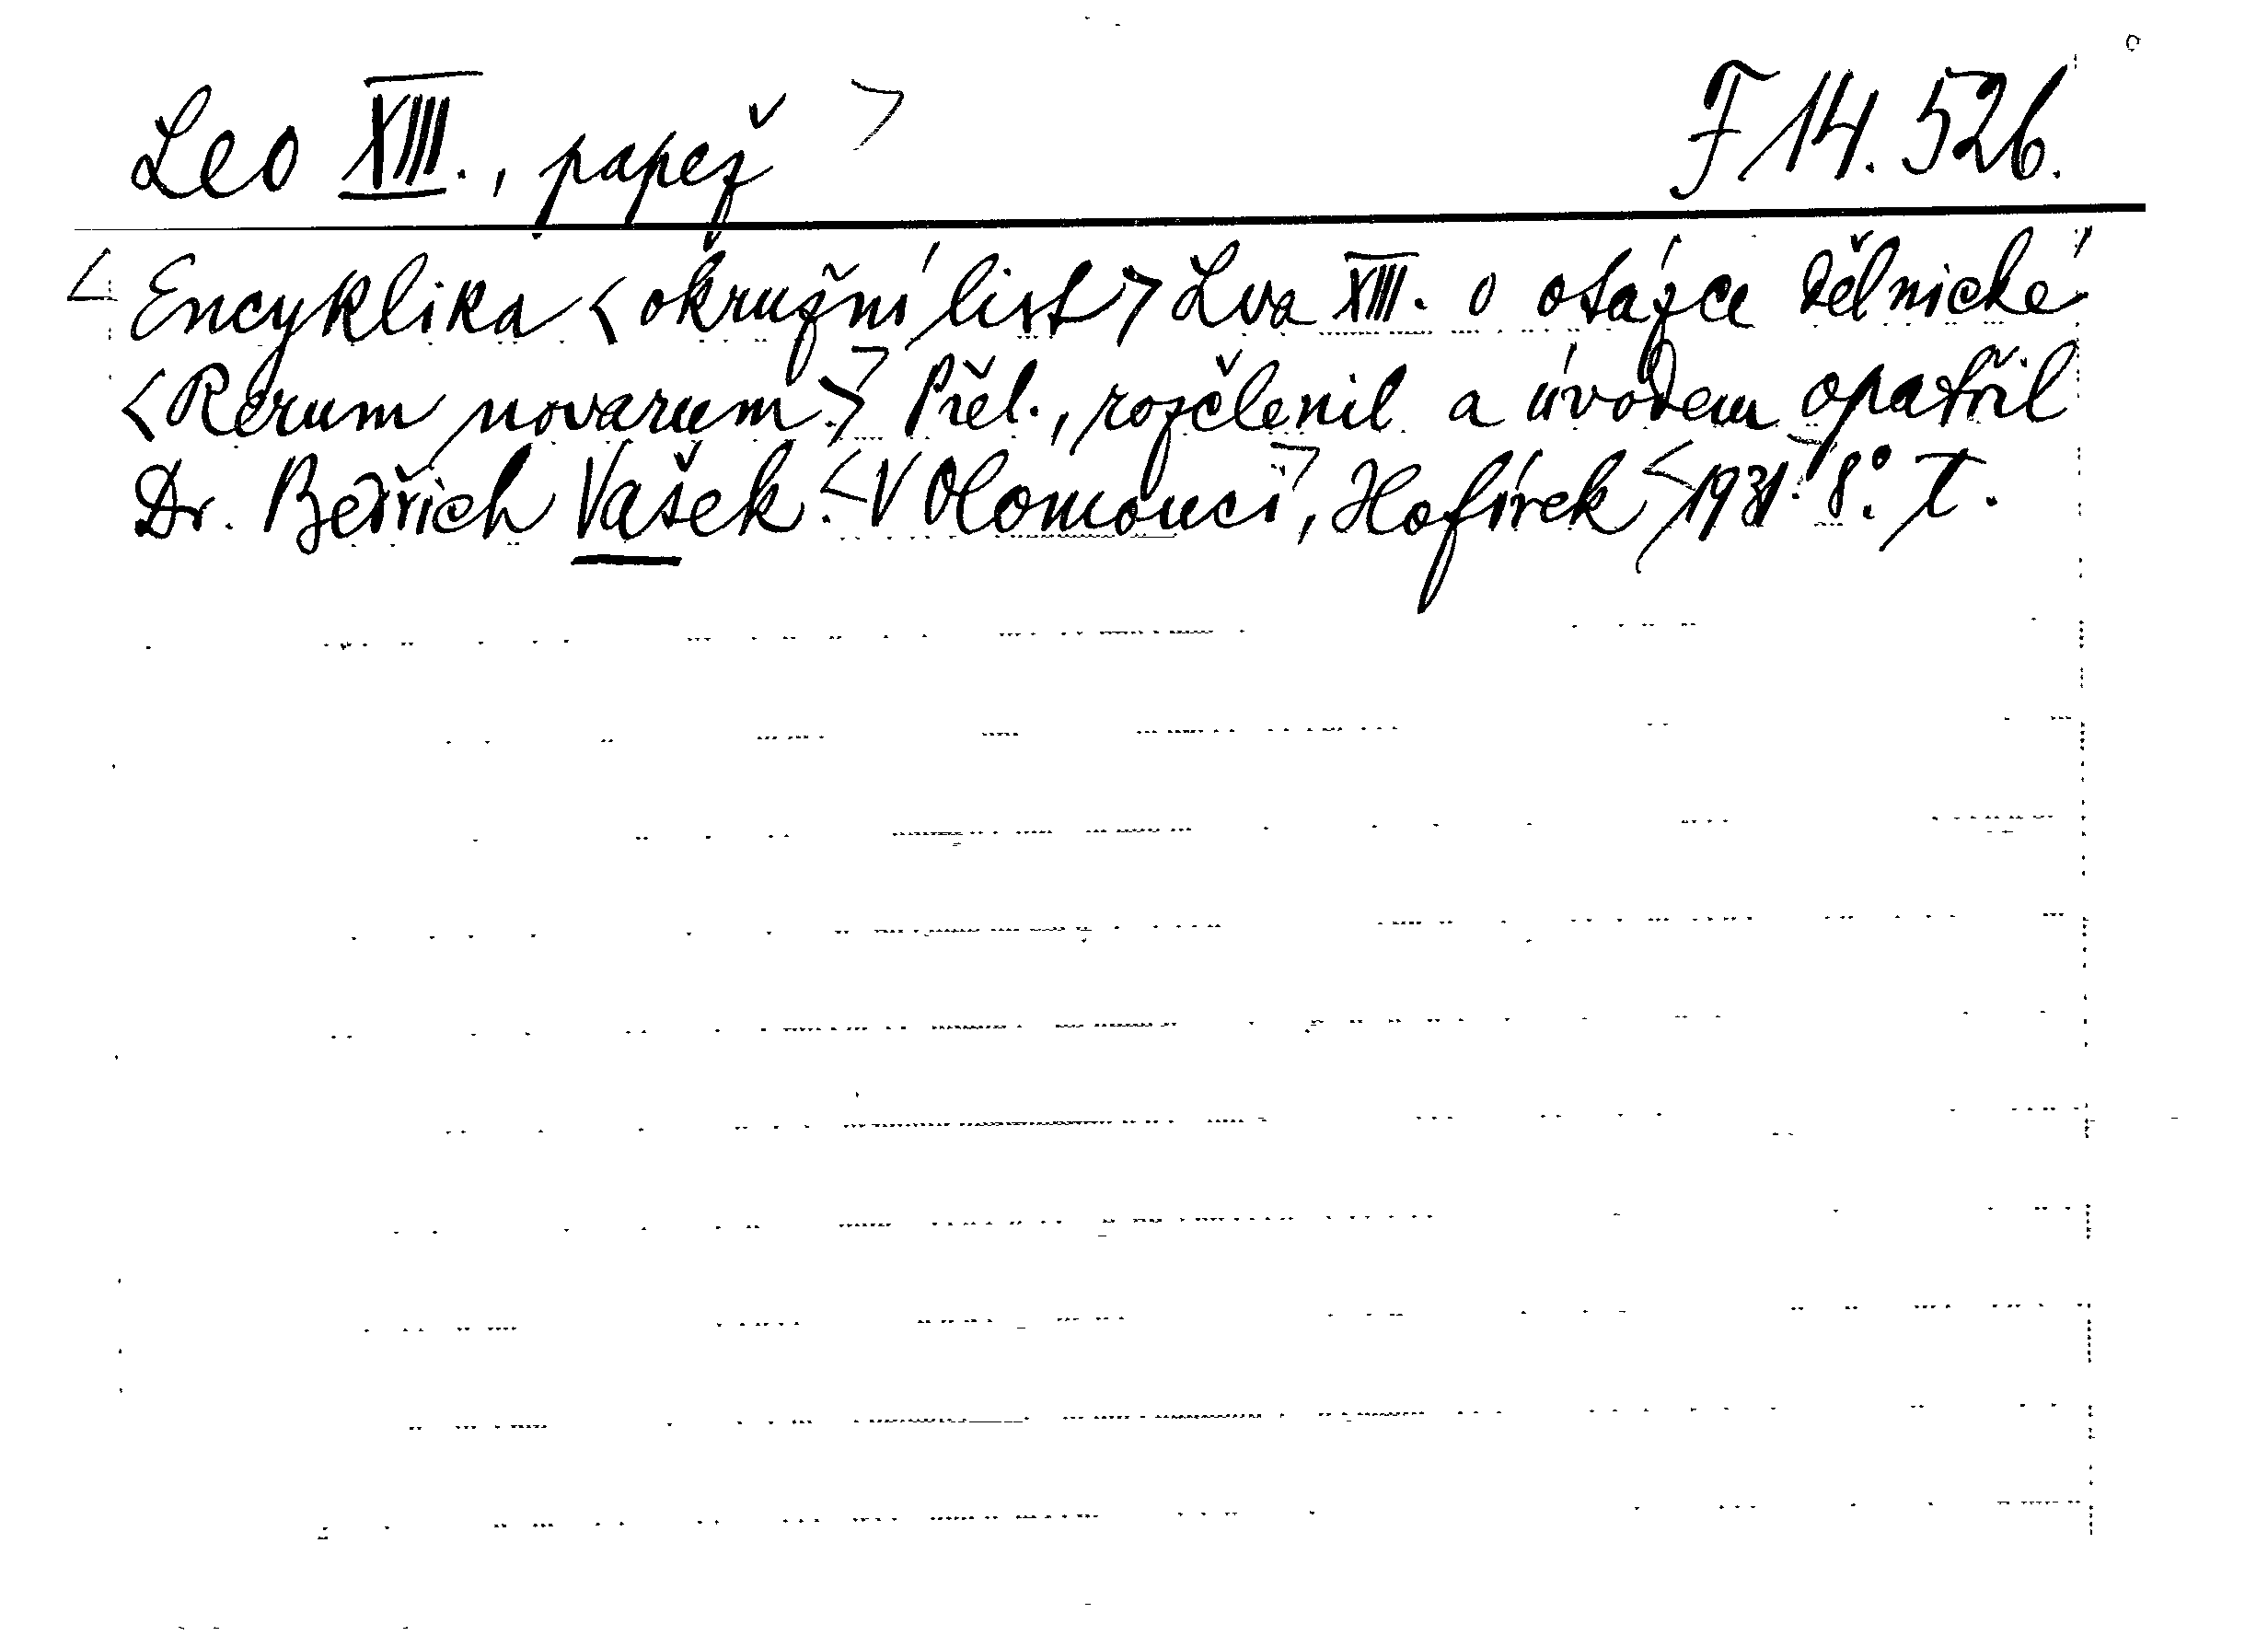 Leo XIII., papež > F 14.526.
< Encyklika <okružní list> Lva XIII. o otázce dělnické
<Rerum novarum.> Přel., rozčlenil a úvodem opatřil
Dr. Bedřich Vašek. < V Olomouci, Hofírek < 1931. 8°. T.